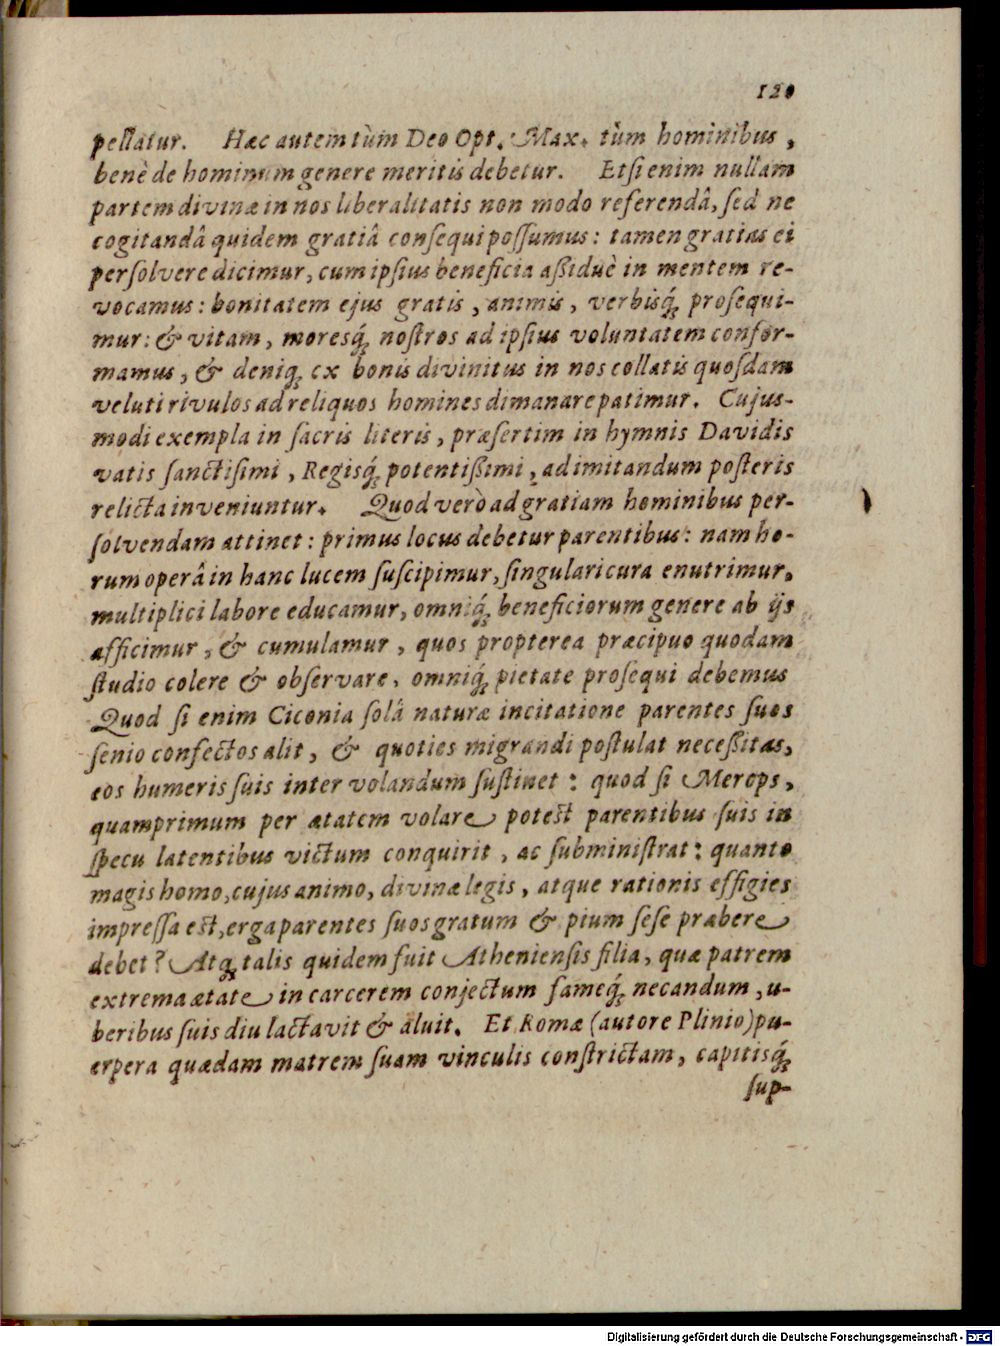 120
pellatur. Hæc autem tùm Deo Opt. Max. tùm hominibus,
benè de hominum genere meritis debetur. Etsi enim nullam
partem divinæ in nos liberalitatis non modo referendâ, sed ne
cogitandâ quidem gratiâ consequi possumus: tamen gratias ei
persolvere dicimur, cum ipsius beneficia aßiduè in mentem re-
vocamus: bonitatem ejus gratis, animis, verbisq́; prosequi-
mur: & vitam, moresq́; nostros ad ipsius voluntatem confor-
mamus, & deniq; ex bonis divinitus in nos collatis quosdam
veluti rivulos ad reliquos homines dimanare patimur. Cujus-
modi exempla in sacris literis, præsertim in hymnis Davidis
vatis sanctisimi, Regisq́; potentißimi, ad imitandum posteris
relicta inveniuntur. Quod verò ad gratiam hominibus per-
solvendam attinet: primus locus debetur parentibus: nam ho-
rum operâ in hanc lucem suscipimur, singulari cura enutrimur,
multiplici labore educamur, omniq́; beneficiorum genere ab ijs
afficimur, & cumulamur, quos propterea præcipuo quodam
studio colere & observare, omniq́; pietate prosequi debemus
Quod si enim Ciconia solâ naturæ incitatione parentes suos
senio confectos alit, & quoties migrandi postulat neceßitas,
eos humeris suis inter volandum sustinet: quod si Merops,
quamprimum per ætatem volare potest parentibus suis in
specu latentibus victum conquirit, ac subministrat: quanto
magis homo, cujus animo, divinæ legis, atque rationis effigies
impressa est, erga parentes suos gratum & pium sese præbere
debet? Atq; talis quidem fuit Atheniensis filia, quæ patrem
extrema ætate in carcerem conjectum fameq́; necandum, u-
beribus suis diu lactavit & aluit. Et Romæ (autore Plinio) pu-
erpera quædam matrem suam vinculis constrictam, capitisq́;
sup-
Digitalisierung gefördert durch die Deutsche Forschungsgemeinschaft - DFG